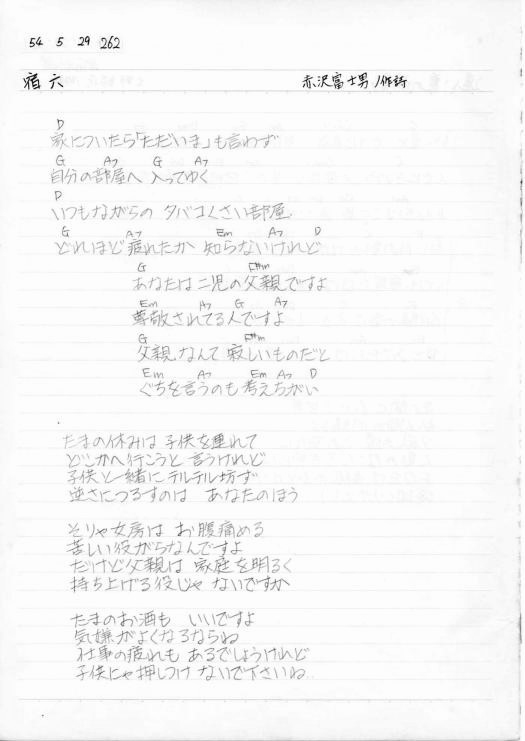 54 5 29 262
宿六
赤沢富士男/作詩
D
家についたら「ただいま」も言わず
G A7 G A7
自分の部屋へ 入ってゆく
D
いつもながらの タバコくさい部屋
G A7 Em A7 D
どれほど 疲れたか 知らないけれど
G F#m
あなたは二児の父親ですよ
Em A7 G A7
尊敬されてる人ですよ
G F#m
父親なんて 寂しいものだと
Em A7 Em A7 D
ぐちを言うのも考えちがい
たまの休みは 子供を連れて
どこかへ行こうと 言うけれど
子供と一緒にテルテル坊ず
逆さにつるすのは あなたのほう
そりゃ女房は お腹痛める
苦しい役がらなんですよ
だけど父親は 家庭を明るく
持ち上げる役じゃ ないですか
たまのお酒も いいですよ
気嫌がよくなるならね
仕事の疲れも あるでしょうけれど
子供にゃ押しつけ ないで下さいね